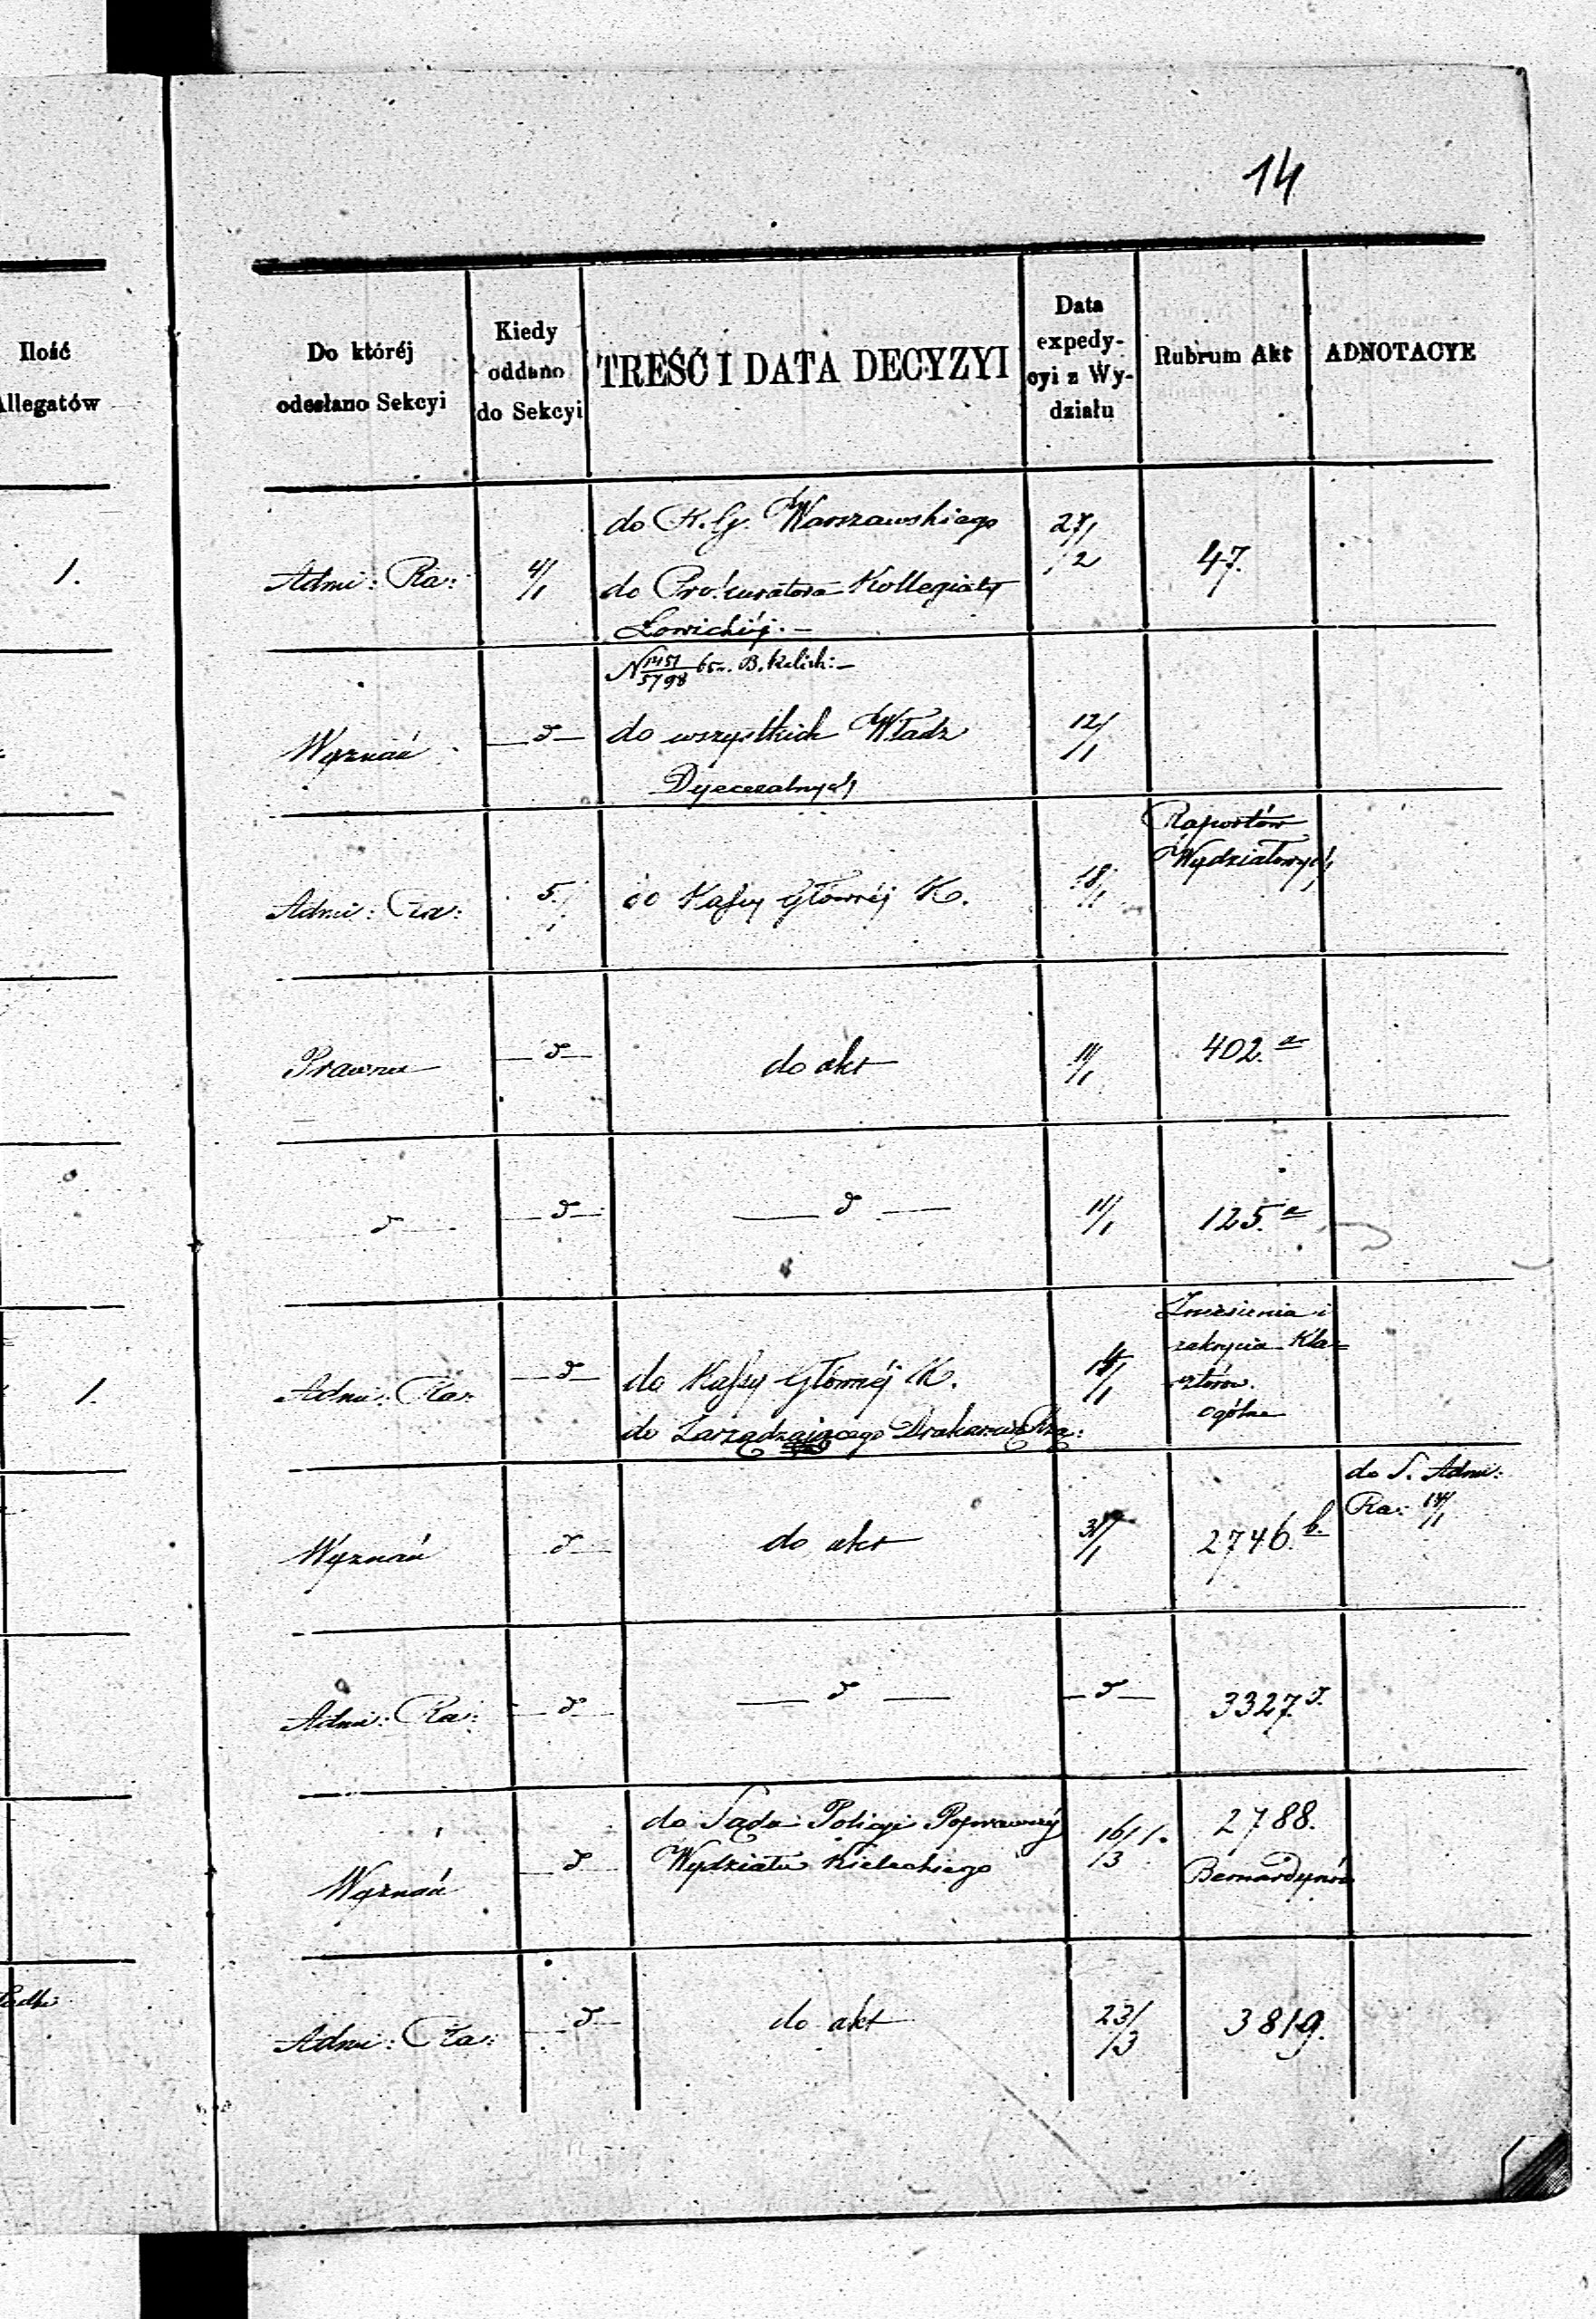 14
Ilość
Allegatów
Do któréj
odesłano Sekcyi
Kiedy
oddano
do Sekcyi
TREŚĆ I DATA DECYZYI
Data
expedy-
cyi z Wy-
działu
Rubrum Akt
ADNOTACYE
1.
Admi: Ra:
4/1
do R. G. Warszawskiego
do Prokuratora Kollegiaty
Łowickiéj. —
27/2
47.
N 1451/5798 B. Kalish: —
Wyznań
— d —
do wszystkich Władz
Dyecezalnych
12/1
Admi: Ra:
5/1
do Kassy Głównéj K.
18/1
Raportów
Wydziałowych
Prawna
— d —
do akt
11/1
402. a
d —
— d —
— d —
11/1
125. a
1.
Admi: Ra:
— d —
do Kassy Głównéj K.
do Zarządzającego Drukarnią Rzą:
Zniesienia i
zakrycia Kla=
sztorów.
ogólne
Wyznań
— d —
do akt
31/1
2746. b.
do S. Admi:
Ra: 14/1
Admi: Ra:
— d —
— d —
— d —
3327. d.
Wyznań
— d —
do Sądu Policyi Poprawczéj
Wydziału Kieleckiego
16/3
2788.
Bernardynów
Admi: Ra:
— d —
do akt
23/3
3819.